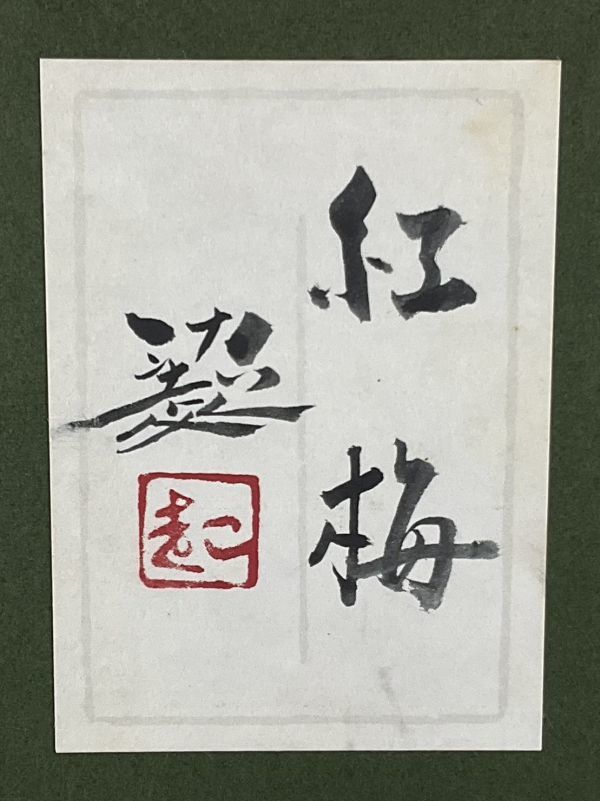 紅梅
起